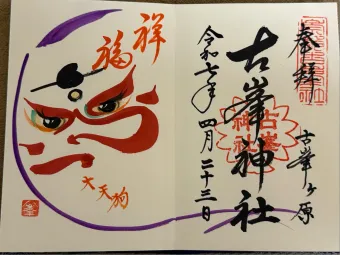 奉拝
古峯ヶ原
古峯神社
古峯神社
令和七年四月二十三日
祥福
大天狗